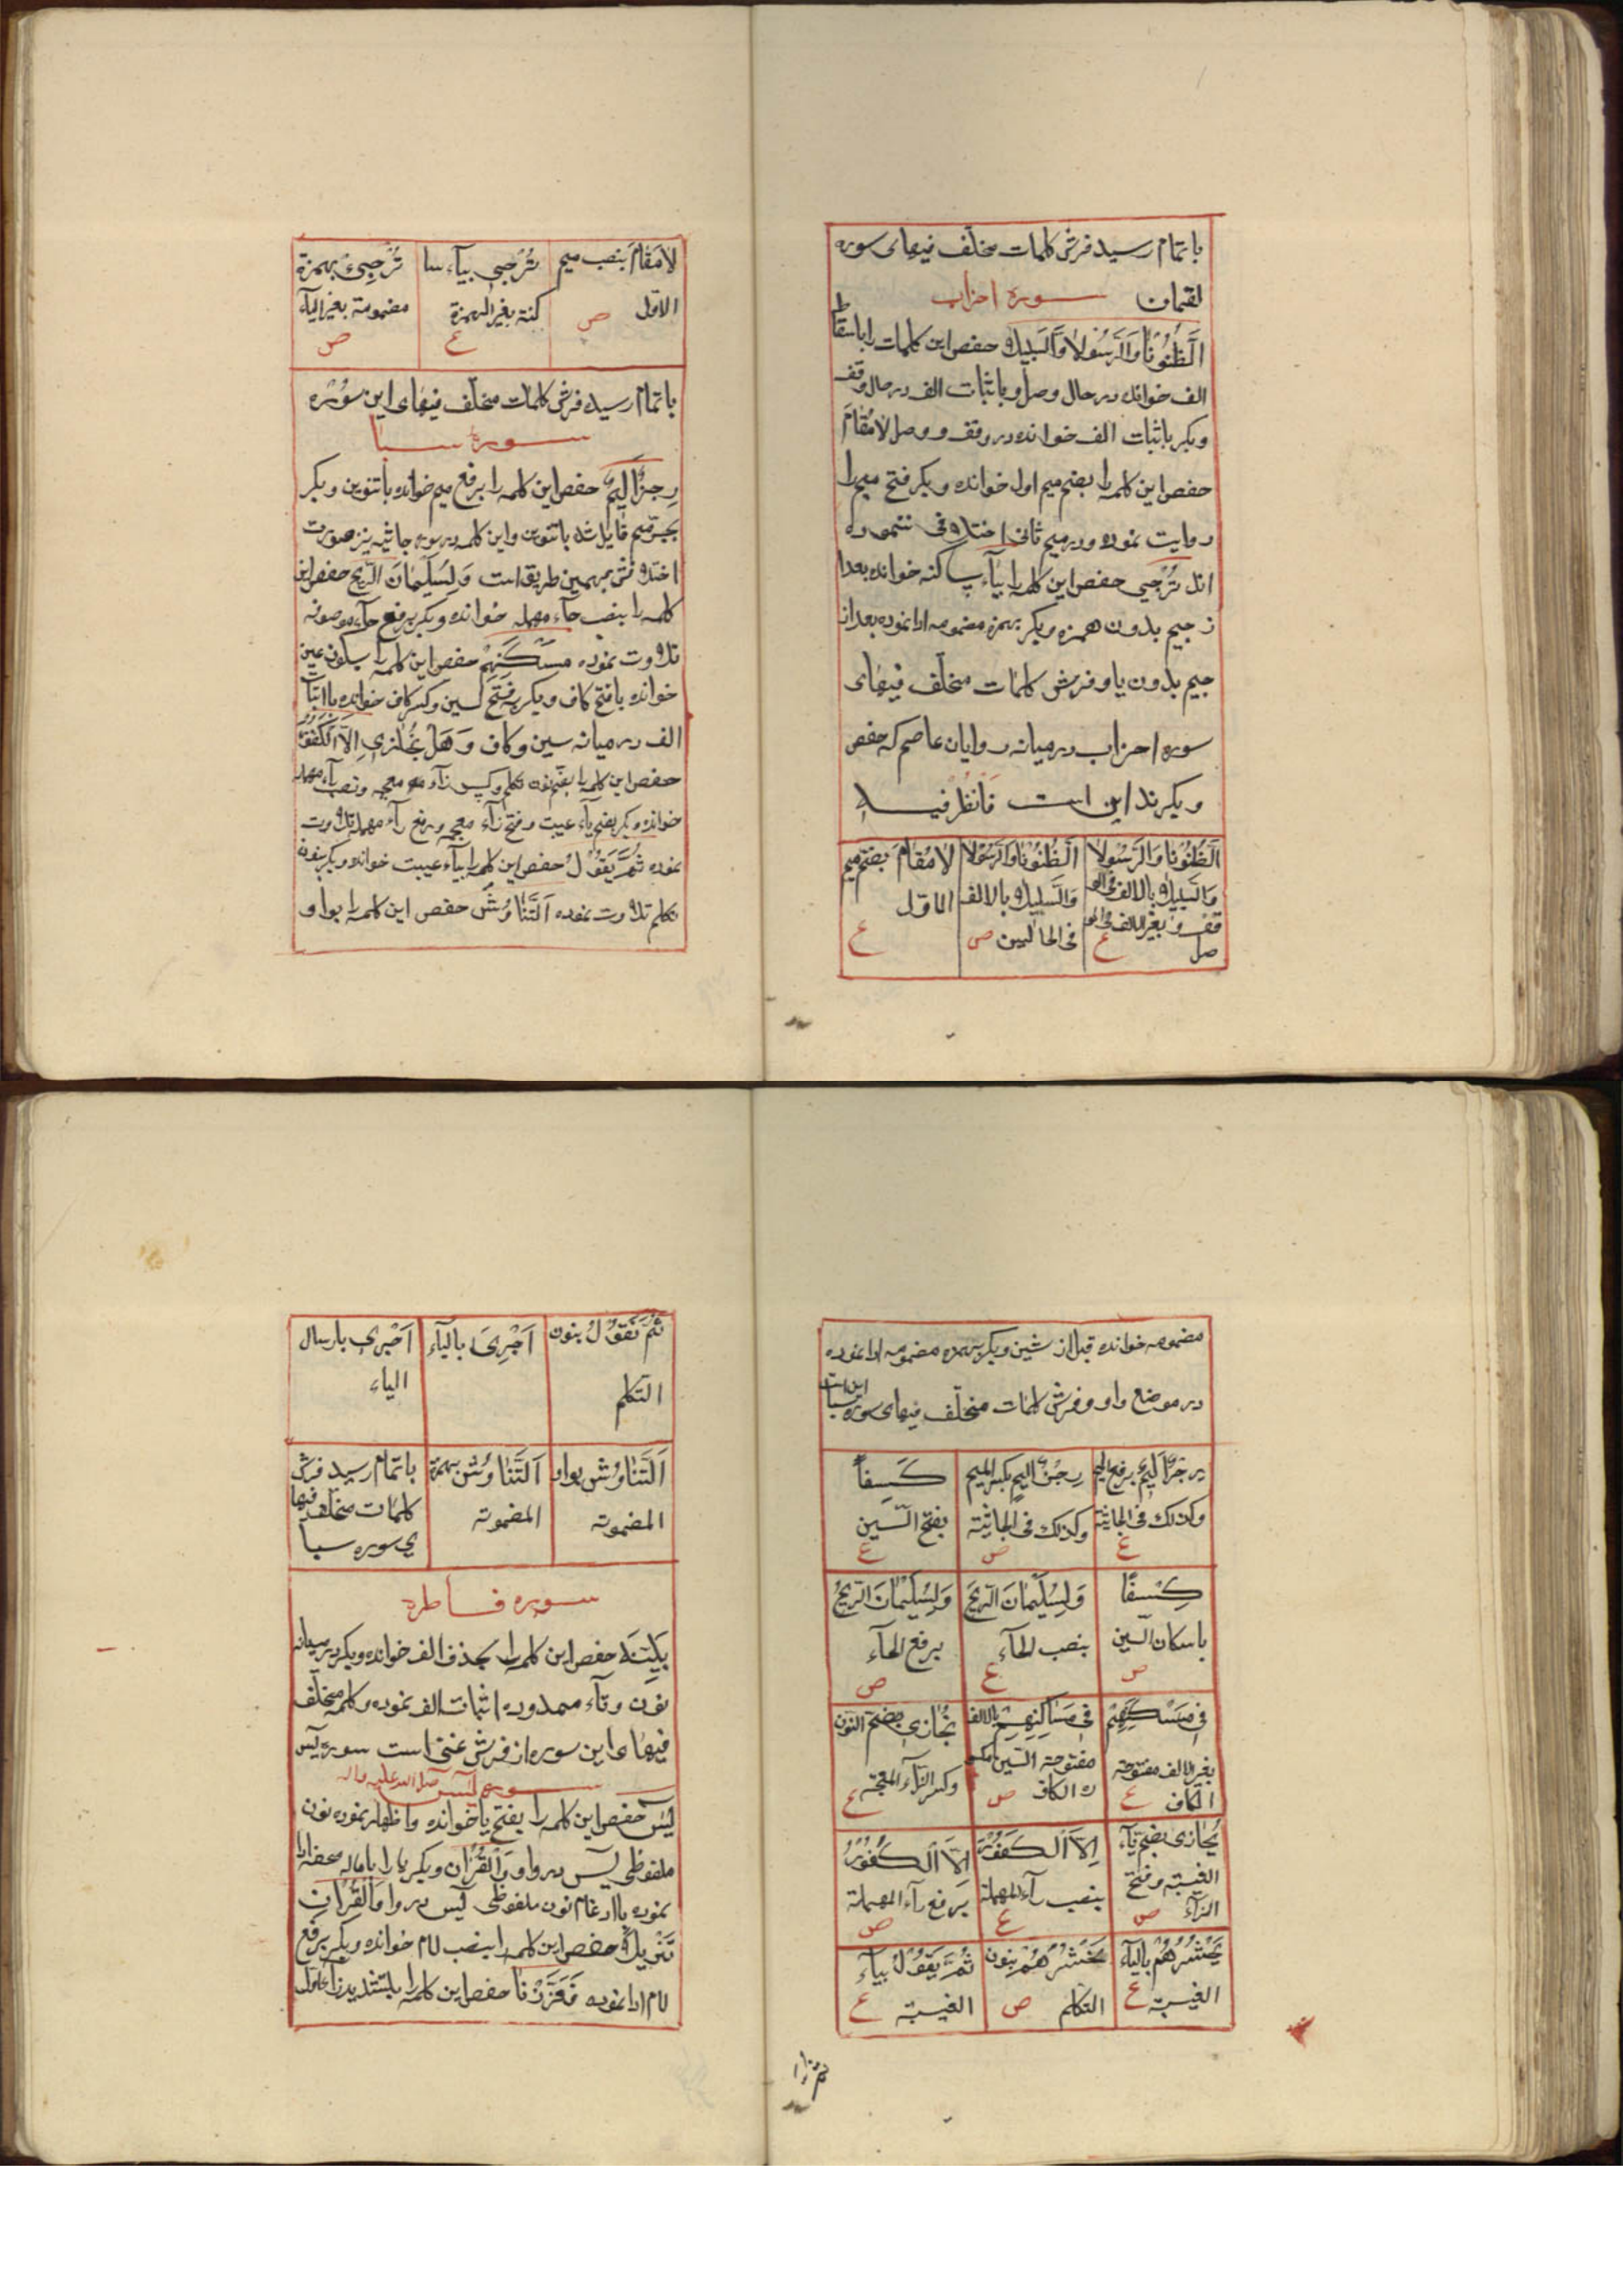 باتمام رسید فرش کلمات مختلف فیهای سوره
لقمان سوره احزاب
اَلظُّنُونَا وَالرَّسُولَا وَالسَّبِیلَا حفص این کلمات را باسقاط
الف خوانده در حال وصل و باثبات الف در حال وقف
وبکر باثبات الف خوانده در وقف و وصل لامُقَامَ
حفص این کلمه را بضم میم اول خوانده وبکر فتح میم را
روایت نموده ودر میم ثانی اختلافی ننموده
اند تُرْجِی حفص این کلمه را بیاء ساکنه خوانده بعد ا
ز جیم بدون همزه وبکر بهمزه مضمومه ادا نموده بعد از
جیم بدون یا وفرش کلمات مختلف فیهای
سوره احزاب در میانه روایان عاصم که حفص
وبکرند این است فَانْظُرْ فیه
اَلظُّنُونَا وَالرَّسُولَا
وَالسَّبِیلَا بالالف فی الو
قف وبغیر الالف فی الو
صل ع
اَلظُّنُونَا وَالرَّسُولَا
وَالسَّبِیلَا بالالف
فی الحالین ص
لامُقَامَ بضم میم
الاول
ع
لامَقَامَ بنصب میم
الاول ص
تُرْجِی بیاء سا
کنة بغیر الهمزة
ع
تُرْجِئُ بهمزة
مضمومة بغیر الیاء
ص
باتمام رسید فرش کلمات مختلف فیهای این سوره
سوره سبا
رِجْزٍ اَلِیمٌ حفص این کلمه را برفع میم خوانده باتنوین وبکر
بجر میم قایل شد باتنوین واین کلمه در سوره جاثیه نیز صورت
اختلافش بهمین طریق است وَلِسُلَیْمَانَ الرِّیحَ حفص این
کلمه را بنصب حاء مهمله خوانده وبکر برفع حاء موصوفه
تلاوت نموده مَسْکَنِهِمْ حفص این کلمه را بسکون عین
خوانده با فتح کاف وبکر بفتح سین وکسر کاف خوانده با اثبات
الف در میانه سین وکاف وَهَلْ نُجَازِی اِلَّا الْکَفُورَ
حفص این کلمه را بضم نون تکلم وکسر زاء معجمه ونصب راء مهمله
خوانده وبکر بضم یاء غیبت وفتح زاء معجمه ورفع راء مهمله تلاوت
نموده ثُمَّ یَقُولُ حفص این کلمه را بیاء غیبت خوانده وبکر بنون
تکلم تلاوت نموده اَلتَّنَاوُشُ حفص این کلمه را بواو
مضمومه خوانده قبل از شین وبکر بهمزه مضمومه ادا نموده
در موضع واو وفرش کلمات مختلف فیهای سوره سبا این است
رِجْزٍ اَلِیمٌ برفع المیم
وکذلک فی الجاثیة
ع
رِجْزٍ اَلِیمٍ بکسر المیم
وکذلک فی الجاثیة
ص
کِسَفاً
بفتح السین
ع
کِسْفًا
باسکان السین
ص
وَلِسُلَیْمَانَ الرِّیحَ
بنصب الحاء
ع
وَلِسُلَیْمَانَ الرِّیحُ
برفع الحاء
ص
فی مَسْکَنِهِمْ
بغیر الالف مفتوحة
الکاف ع
فی مَسَاکِنِهِمْ بالالف
مفتوحة السین مکسو
رة الکاف ص
نُجَازِی بضم النون
وکسر الزاء المعجمة
ع
یُجَازَی بضم یاء
الغیبة وفتح
الزاء ص
اِلَّا الْکَفُورَ
بنصب راء المهملة
ع
اِلَّا الْکَفُورُ
برفع راء المهملة
ص
یَحْشُرُهُمْ بالیاء
الغیبة ع
نَحْشُرُهُمْ بنون
التکلم ص
ثُمَّ یَقُولُ بیاء
الغیبة ع
ثُمَّ نَقُولُ بنون
التکلم
اَجْرِیَ بالیاء
اَجْرِی بارسال
الیاء
اَلتَّنَاوُشُ بواو
المضمومة
اَلتَّنَاوُشُ بهمزة
المضمومة
باتمام رسید فرش
کلمات مختلف فیها
ی سوره سبا
سوره فاطره
بَیِّنَةٍ حفص این کلمه را بحذف الف خوانده وبکر در میانه
نون وتاء ممدوده اثبات الف نموده وکلمه مختلف
فیهای این سوره از فرش غنی است سوره یس
سوره یس صلی الله علیه واله
یس حفص این کلمه را بفتح یا خوانده واظهار نموده نون
ملفوظی یس در واو وَالْقُرْآنِ وبکر یا را باماله محضه ادا
نموده با ادغام نون ملفوظی یس در واو وَالْقُرْآنِ
تَنْزِیلَ حفص این کلمه را بنصب لام خوانده وبکر برفع
لام ادا نموده فَعَزَّزْنَا حفص این کلمه را بتشدید زاء اول